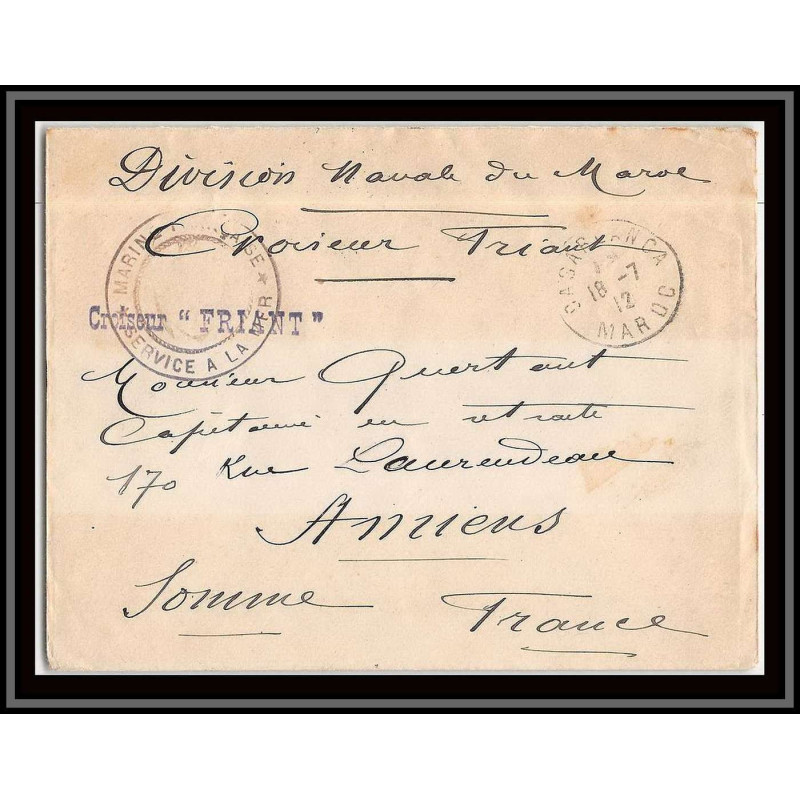 Division Navale du Maroc
Croiseur Friant
MARINE FRANÇAISE ★ SERVICE A LA MER ★
Croiseur "FRIANT"
CASABLANCA
18 -7
12
MAROC
Monsieur Quertant
Capitaine en retraite
170 Rue Laurendeau
Amiens
Somme France